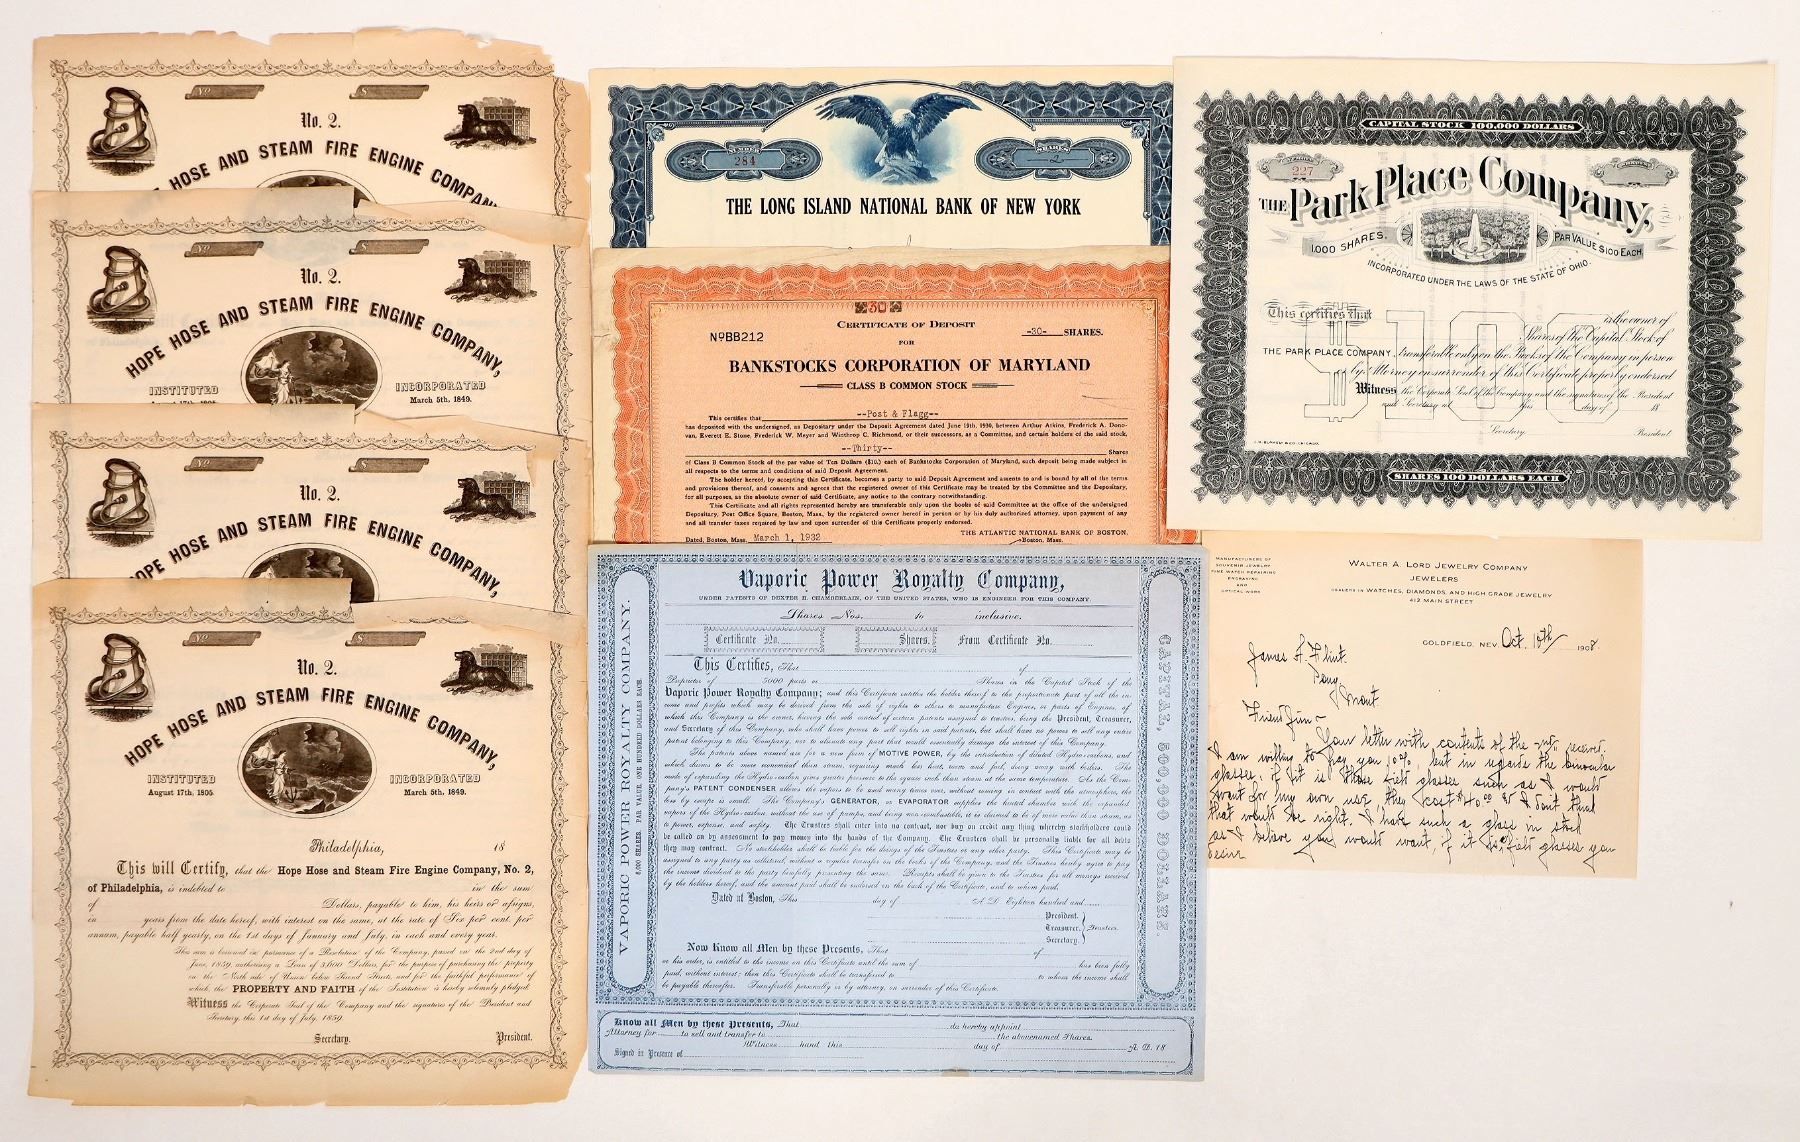 No
$
No. 2.
HOSE AND STEAM FIRE ENGINE COMPANY,
No
$
No. 2.
HOPE HOSE AND STEAM FIRE ENGINE COMPANY,
INSTITUTED
INCORPORATED
March 5th, 1849.
No
$
No. 2.
HOPE HOSE AND STEAM FIRE ENGINE COMPANY,
No
$
No. 2.
HOPE HOSE AND STEAM FIRE ENGINE COMPANY,
INSTITUTED
August 17th, 1805.
INCORPORATED
March 5th, 1849.
Philadelphia, 18
This will Certify, that the Hope Hose and Steam Fire Engine Company, No. 2,
of Philadelphia, is indebted to in the sum
of Dollars, payable to him, his heirs or assigns,
in years from the date hereof, with interest on the same, at the rate of Six per cent. per
annum, payable half yearly, on the 1st days of January and July, in each and every year.
This sum is borrowed in pursuance of a Resolution of the Company, passed on the 2nd day of
June, 1859, authorizing a Loan of Dollars, for the purpose of purchasing the property
on the North side of Union below Streets, and for the faithful performance of
which the PROPERTY AND FAITH of the Institution is hereby solemnly pledged.
Witness the Corporate Seal of the Company and the signatures of the President and
Secretary, this 1st day of July, 1859.
Secretary.
President.
NUMBER
284
SHARES
2
THE LONG ISLAND NATIONAL BANK OF NEW YORK
30
CERTIFICATE OF DEPOSIT
NoBB212
-30- SHARES.
FOR
BANKSTOCKS CORPORATION OF MARYLAND
CLASS B COMMON STOCK
This certifies that --Post & Flagg--
has deposited with the undersigned, as Depositary under the Deposit Agreement dated June 19th, 1930, between Arthur Atkins, Frederick A. Dono-
van, Everett E. Stone, Frederick W. Meyer and Winthrop C. Richmond, or their successors, as a Committee, and certain holders of the said stock,
--Thirty-- Shares
of Class B Common Stock of the par value of Ten Dollars ($10.) each of Bankstocks Corporation of Maryland, such deposit being made subject in
all respects to the terms and conditions of said Deposit Agreement.
The holder hereof, by accepting this Certificate, becomes a party to said Deposit Agreement and assents to and is bound by all of the terms
and provisions thereof, and consents and agrees that the registered owner of this Certificate may be treated by the Committee and the Depositary,
for all purposes, as the absolute owner of said Certificate, any notice to the contrary notwithstanding.
This Certificate and all rights represented hereby are transferable only upon the books of said Committee at the office of the undersigned
Depositary, Post Office Square, Boston, Mass., by the registered owner hereof in person or by his duly authorized attorney, upon payment of any
and all transfer taxes required by law and upon surrender of this Certificate properly endorsed.
Dated, Boston, Mass. March 1, 1932
THE ATLANTIC NATIONAL BANK OF BOSTON,
Boston, Mass.
Vaporic Power Royalty Company,
UNDER PATENTS OF DEXTER H. CHAMBERLAIN, OF THE UNITED STATES, WHO IS ENGINEER FOR THIS COMPANY.
Shares Nos. to inclusive.
Certificate No. Shares. From Certificate No.
This Certifies, That of
Proprietor of 5000 parts or Shares in the Capital Stock of the
Vaporic Power Royalty Company; and this Certificate entitles the holder thereof to the proportionate part of all the in-
come and profits which may be derived from the sale of rights to others to manufacture Engines, or parts of Engines, of
which this Company is the owner, having the sole control of certain patents assigned to trustees, being the President, Treasurer,
and Secretary of this Company, who shall have power to sell rights in said patents, but shall have no power to sell any entire
patent belonging to this Company, nor to alienate any part that would essentially damage the interest of this Company.
The patents above named are for a new form of MOTIVE POWER, by the introduction of diluted Hydro-carbons, and
which claims to be more economical than steam, requiring much less heat, room and fuel, doing away with boilers. This
mode of expanding the Hydro-carbon gives greater pressure to the square inch than steam at the same temperature. As the Com-
pany's PATENT CONDENSER allows the vapors to be used many times over, without coming in contact with the atmosphere, the
loss by escape is small. The Company's GENERATOR, or EVAPORATOR supplies the heated chamber with the expanded
vapors of the Hydro-carbon without the use of pumps, and being non-combustible, it is claimed to be of more value than steam, as
to power, expense, and safety. The Trustees shall enter into no contract, nor buy on credit any thing whereby stockholders could
be called on by assessment to pay money into the hands of the Company. The Trustees shall be personally liable for all debts
they may contract. No stockholder shall be liable for the doings of the Trustees or any other party. This Certificate may be
assigned to any party as collateral, without a regular transfer on the books of the Company, and the Trustees hereby agree to pay
the income dividend to the party lawfully presenting the same. Receipts shall be given to the Trustees for all moneys received
by the holders hereof, and the amount paid shall be endorsed on the back of the Certificate, and to whom paid.
Dated at Boston, This day of A. D. Eighteen hundred and
President.
Treasurer. Trustees.
Secretary.
Now Know all Men by these Presents, That of
or his order, is entitled to the income on this Certificate until the sum of has been fully
paid, without interest; then this Certificate shall be transferred to to whom the income shall
be payable thereafter. Transferable personally or by attorney, on surrender of this Certificate.
Know all Men by these Presents, That do hereby appoint
Attorney for to sell and transfer to the abovenamed Shares.
Witness hand this day of A. D. 18
Signed in Presence of
VAPORIC POWER ROYALTY COMPANY.
5,000 SHARES. PAR VALUE ONE HUNDRED DOLLARS EACH.
CAPITAL, 500,000 DOLLARS.
CAPITAL STOCK 100,000 DOLLARS
NUMBER
227
SHARES
THE Park Place Company,
1,000 SHARES. PAR VALUE $100 EACH
INCORPORATED UNDER THE LAWS OF THE STATE OF OHIO.
$100
This certifies that is the owner of
Shares of the Capital Stock of
THE PARK PLACE COMPANY, transferable only on the Books of the Company in person
by Attorney on surrender of this Certificate properly endorsed
Witness the Corporate Seal of the Company and the signatures of the President
and Secretary at this day of 18
Secretary
President
SHARES 100 DOLLARS EACH
MANUFACTURERS OF
SOUVENIR JEWELRY
FINE WATCH REPAIRING
ENGRAVING
AND
OPTICAL WORK
WALTER A. LORD JEWELRY COMPANY
JEWELERS
DEALERS IN WATCHES, DIAMONDS, AND HIGH GRADE JEWELRY
413 MAIN STREET
GOLDFIELD, NEV. Oct. 10th 1908.
James F. Flint.
Pony,
Mont.
Friend Jim -
Your letter with contents of the received.
I am willing to pay you 10%, but in regards the binocular
glasses, if it is those field glasses such as I would
want for my own use, they cost $40.00 & I don't think
that would be right. I have such a glass in stock
as I believe you would want, if it is field glasses you
desire